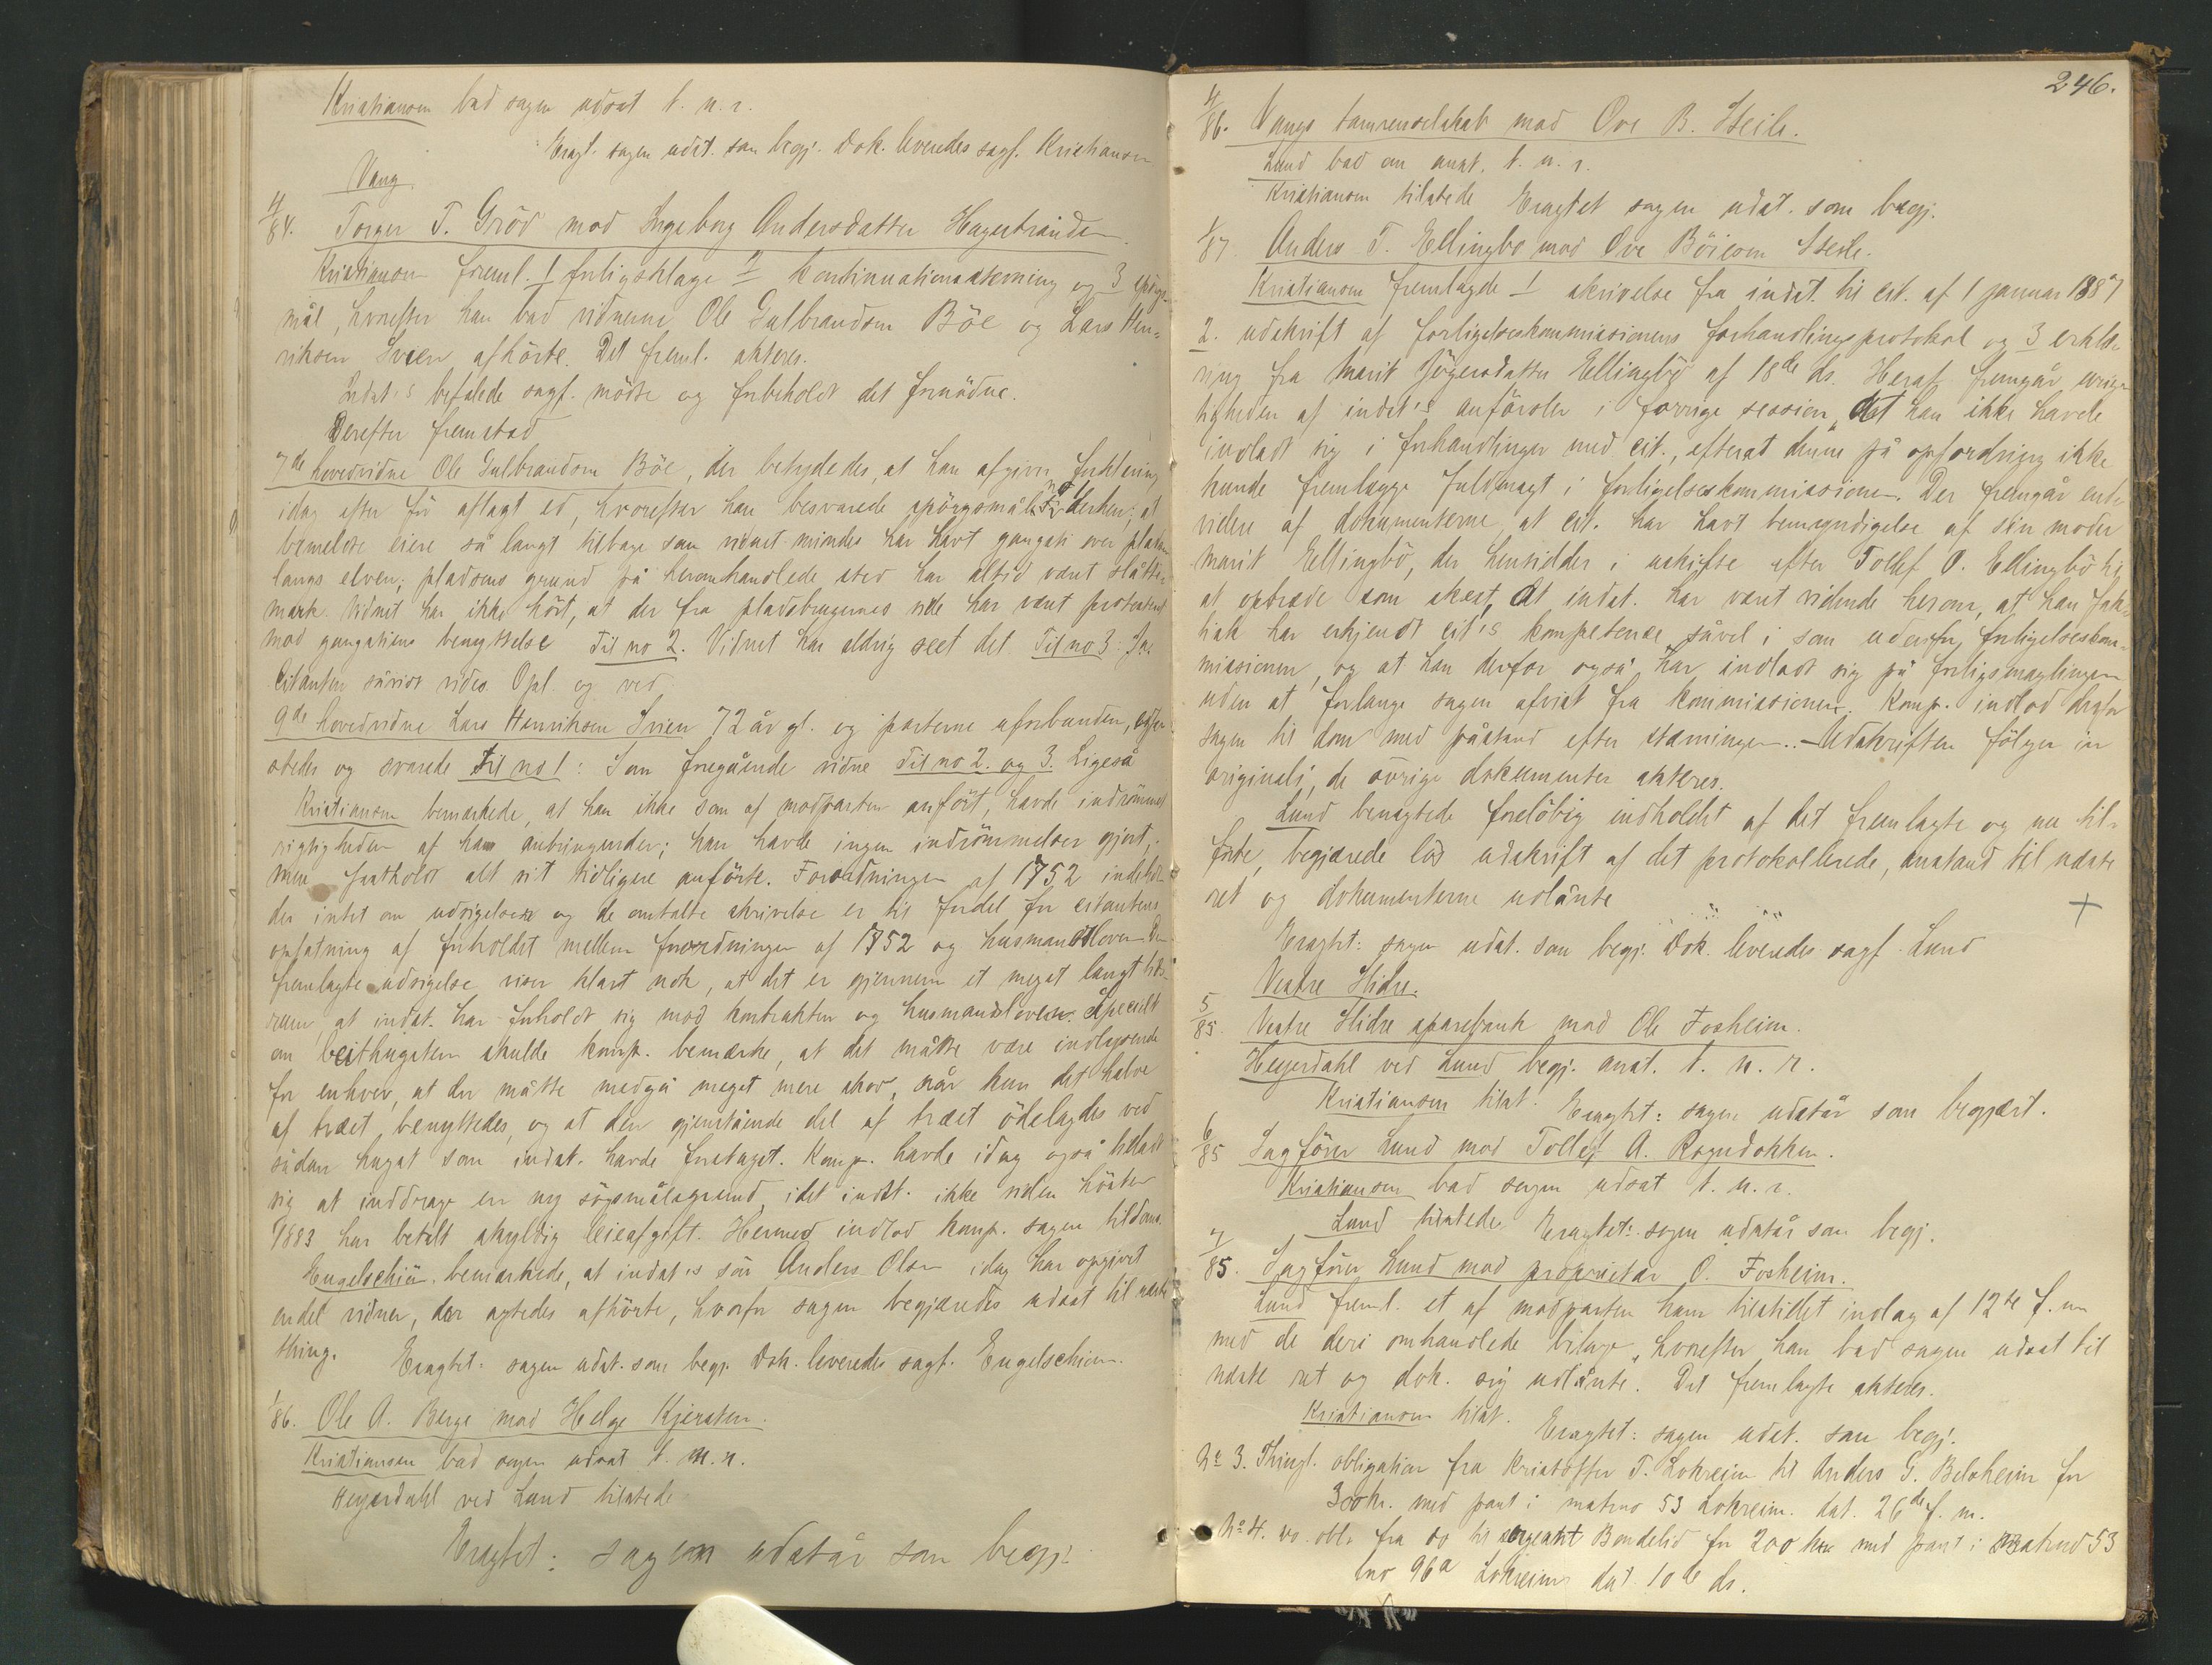 Kristiansen bad sagen udsat t. n. r.
Eragt. sagen udst. som begj. Dok. leveredes sagf. Kristiansen
Vang.
4/84. Torger T. Gröv mod Ingeborg Andersdatter Hagerbraaden.
Kristiansen freml. 1 forligsklage 2 kontinuationsstevning og 3 spörgs-
mål, hvorefter han bad vidnerne Ole Gulbrandsen Böe og Lars Hen-
riksen Sveen afhörte. Det freml. akteres.
Indst's befalede sagf. mötte og forbeholdt det fornödne.
Derefter fremstod
7de hovedvidne Ole Gulbrandsen Böe, der betydedes, at han afgiver forklaring
idag efter för aflagt ed, hvorefter han besvarede spörgsmål no 1 derhen; at
bemeldte eiere så langt tilbage som vidnet mindes har havt gangsti over pladsen
langs elven; pladsens grund på heromhandlede sted har altid vært slåtte-
mark. Vidnet har ikke hört, at der fra pladsbrugernes side har vært protesteret
mod gangstiens benyttelse Til no 2. Vidnet har aldrig seet det. Til no 3:
Citanten vides. Opl. og ved
9de hovedvidne Lars Henriksen Sveen 72 år gl. og parterne uforbunden,
stedes og svarede Til no 1: Som foregående vidne Til no 2. og 3. Ligeså
Kristiansen bemærkede, at han ikke som af modparten anfört, havde indrömmet
rigtigheden af hans anbringender; han havde ingen indrömmelser gjort,
men fastholdt alt sit tidligere anförte. Forordningen af 1752 indehol-
der intet om udsigelsen og de omtalte skrivelse er til fordel for citantens
opfatning af forholdet mellem forordningen af 1752 og husmandsloven. Den
fremlagte udsigelse viser klart nok, at det er gjennem et meget langt tids-
rum, at indst. har forholdt sig mod kontrakten og husmandsloven. Specielt
om beithugsten skulde komp. bemærke, at det måtte være indlysende
for enhver, at der måtte medgå meget mere skov, når kun det halve
af træet benyttedes, og at den gjenstående del af træet ödelagdes ved
sådan hugst som indst. havde foretaget. Komp. havde idag også tilladt
sig at inddrage en ny sögsmålsgrund, idet indst. ikke siden hösten
1883 har betalt skyldig leieafgift. Hermed indlod komp. sagen tildoms.
Engelschiön bemærkede, at indst's sön Anders Olsen idag har opgivet
endel vidner, der agtedes afhörte, hvorfor sagen begjæredes udsat til næste
thing. Eragtet: sagen udst. som begj. Dok. leveredes sagf. Engelschiön.
1/86. Ole A. Berge mod Helge Kjersten.
Kristiansen bad sagen udsat t. n. r.
Heyerdahl ved Lund tilstede
Eragtet: sagen udstår som begj.
246.
4/86. Vangs samvenselskab mod Ove B. Steile.
Lund bad om anst. t. n. r.
Kristiansen tilstede Eragtet sagen udst. som begj.
1/87. Anders T. Ellingbo mod Ove Böieson Steile.
Kristiansen fremlagde 1 skrivelse fra indst. til cit. af 1 januar 1887
2. udskrift af forligelseskommissionens forhandlingsprotokol og 3 erklæ-
ring fra Marit Jörgersdatter Ellingbö af 18de ds. Heraf fremgår urig-
tigheden af indst's anförsler i forrige session, at han ikke havde
indladt sig i forhandlinger med cit., efterat denne på opfordring ikke
kunde fremlægge fuldmagt i forligelseskommissionen. Der fremgår ende-
videre af dokumenterne, at cit. har havt bemyndigelse af sin moder
Marit Ellingbö, der hensidder i uskifte efter Tollef O. Ellingbö til
at optræde som skeet, at indst. har vært vidende herom, at han fak-
tisk har erkjendt cit's kompetence såvel i som udenfor forligelseskom-
missionen, og at han derfor også har indladt sig på forligsmæglingen
uden at forlange sagen afvist fra kommissionen. Komp. indlod derfor
sagen til dom med påstand efter stevningen. — Udskriften fölger in
originali, de övrige dokumenter akteres.
Lund benægtede foreløbig indholdet af det fremlagte og nu til-
förte, begjærede lös udskrift af det protokollerede, anstand til næste
ret og dokumenterne udlånte
+
Eragtet: sagen udst. som begj. Dok. leveredes sagf. Lund
Vestre Slidre.
5/85. Vestre Slidre sparebank mod Ole Fosheim.
Heyerdahl ved Lund begj. anst. t. n. r.
Kristiansen tilst. Eragtet: sagen udstår som begjært.
6/85 Sagförer Lund mod Tollef A. Rogndokken.
Kristiansen bad sagen udsat t. n. r.
Lund tilstede Eragtet: sagen udstår som begj.
7/85. Sagförer Lund mod proprietær O. Fosheim.
Lund freml. et af modparten ham tilstillet indlæg af 12te f. m
med de deri omhandlede bilage, hvorefter han bad sagen udsat til
næste ret og dok. sig udlånte. Det fremlagte akteres.
Kristiansen tilst. Eragtet: sagen udst. som begj.
No 3. Thingl. obligation fra Kristoffer T. Lokreim til Anders G. Beloheim for
300 kr. med pant i matrno 53 Lokreim. dat. 26de f. m.
No 4. do. obl. fra do til sergeant Bondelid for 200 kr med pant i matrno 53
lno 96a Lokreim dat. 10de ds.